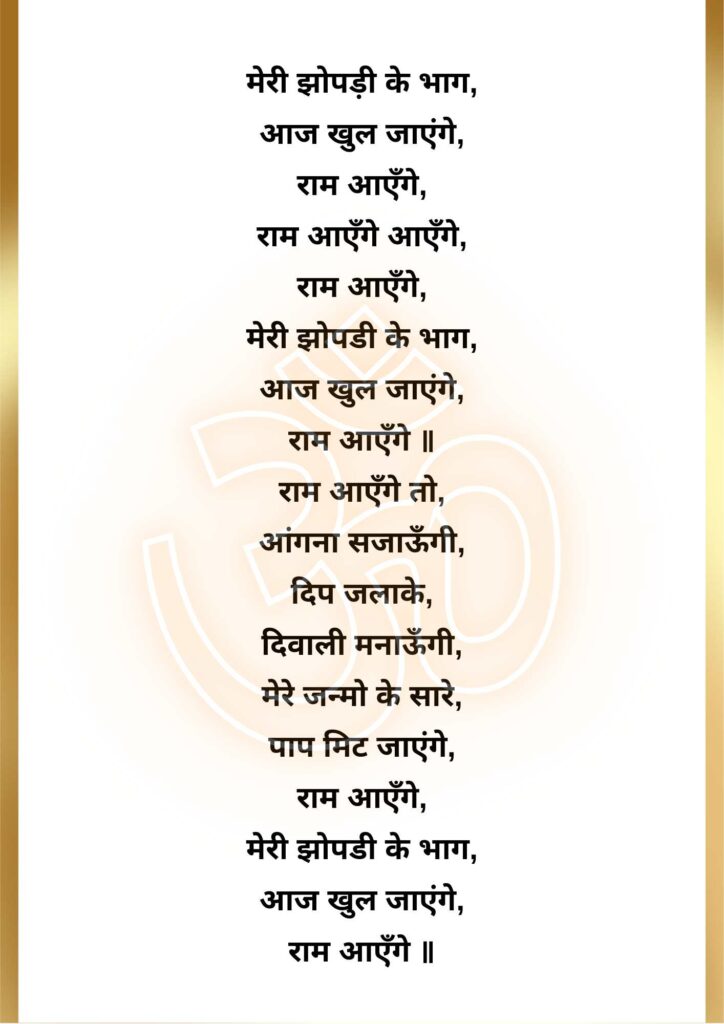 मेरी झोपड़ी के भाग,
आज खुल जाएंगे,
राम आएँगे,
राम आएँगे आएँगे,
राम आएँगे,
मेरी झोपडी के भाग,
आज खुल जाएंगे,
राम आएँगे ॥
राम आएँगे तो,
आंगना सजाऊँगी,
दिप जलाके,
दिवाली मनाऊँगी,
मेरे जन्मो के सारे,
पाप मिट जाएंगे,
राम आएँगे,
मेरी झोपडी के भाग,
आज खुल जाएंगे,
राम आएँगे ॥